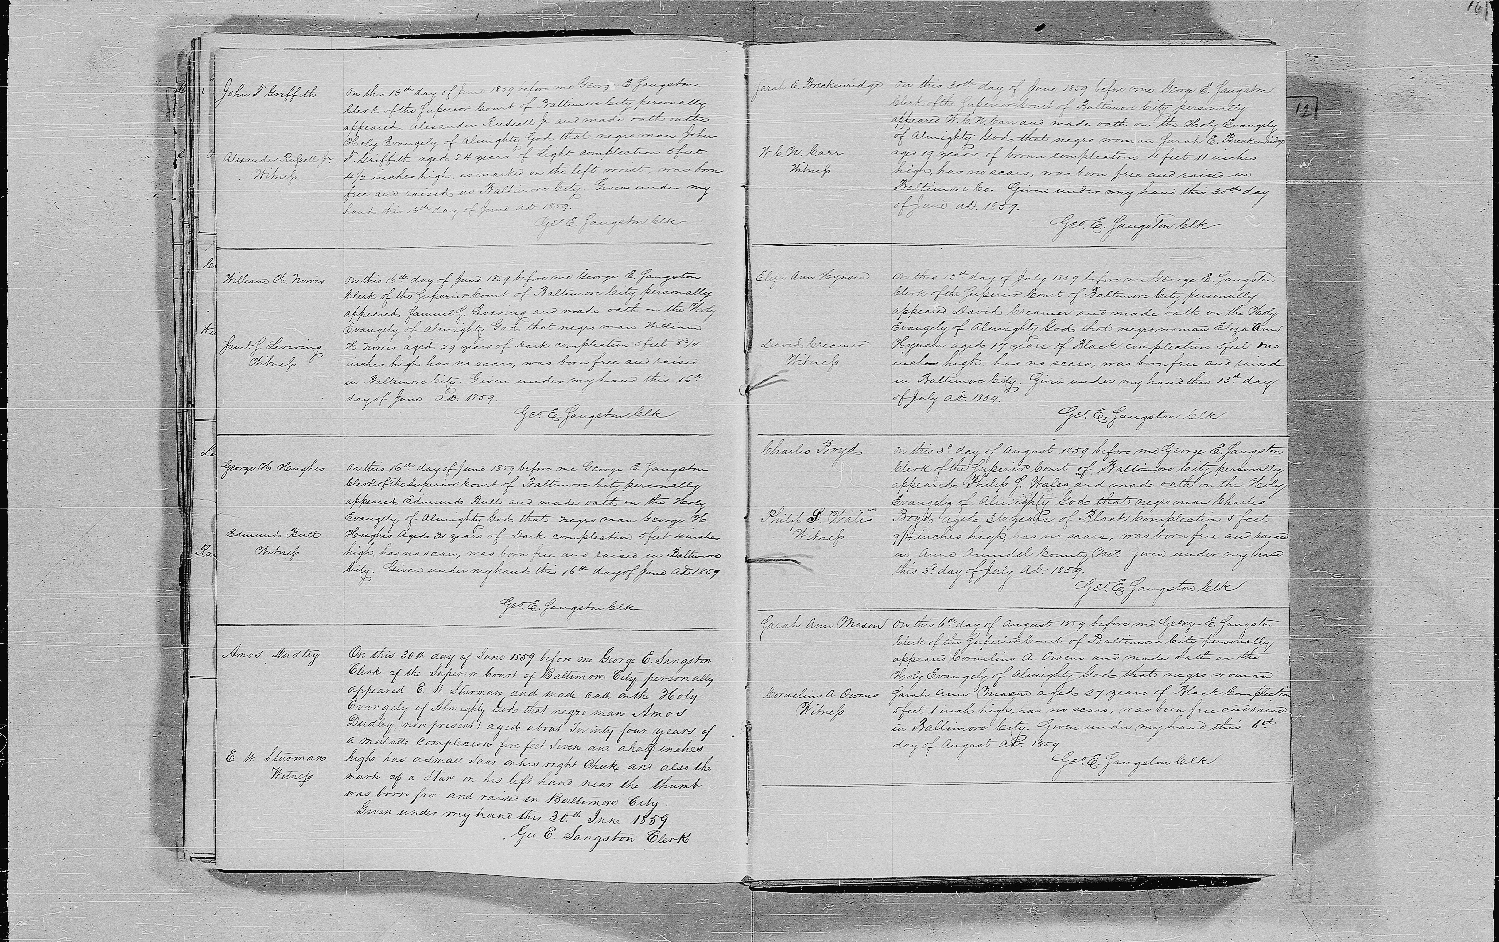 John T Griffith
Alexander Russell Jr
Witness
On this 15th day of June 1859 before me George E Sangston
Clerk of the Superior Court of Baltimore City personally
appeared Alexander Russell Jr and made oath on the
Holy Evangely of Almighty God, that negro man John
T Griffith aged 24 years of Light complection 5 feet
4½ inches high, is marked on the left wrist, was born
free and raised in Baltimore City. Given under my
hand this 15th day of June ad. 1859.
Geo E Sangston Clk
William H. Norris
Witness
On this 16th day of June 1859 before me George E. Sangston
Clerk of the Superior Court of Baltimore City, personally
appeared and made oath on the Holy
Evangely of Almighty God, that negro man William
H Norris aged 29 years of dark complection 5 feet
inches high has no scars, was born free and raised
in Baltimore City. Given under my hand this 16th
day of June A.D. 1859
Geo. E. Sangston Clk
George H. Hughes
Edmund
Witness
On this 16th day of June 1859 before me George E. Sangston
Clerk of the Superior Court of Baltimore City personally
appeared Edmund and made oath on the Holy
Evangely of Almighty God, that negro man George H
Hughes aged years of dark complection 5 feet inches
high, has no scars, was born free and raised in Baltimore
City. Given under my hand this 16th day of June Ad. 1859
Geo. E. Sangston Clk
Amos Dudley
E W Shurman
Witness
On this 30th day of June 1859 before me George E. Sangston
Clerk of the Superior Court of Baltimore City personally
appeared E. W Shurman and made oath on the Holy
Evangely of Almighty God that negro man Amos
Dudley now present aged about Twenty four years of
a mulatto complexion five feet seven and a half inches
high has a small scar on his right Cheek and also the
mark of a Star on his left hand near the thumb
was born free and raised in Baltimore City
Given under my hand this 30th June 1859
Geo E. Sangston Clerk
Sarah E. Breckenridge
W. C. N. Carr
Witness
On this 20th day of June 1859 before me George E Sangston
Clerk of the Superior Court of Baltimore City personably
appeared W. C. N. Carr and made oath on the Holy Evangely
of Almighty God that negro woman Sarah E. Breckenridge
age 19 years of brown complection 4 feet 11 inches
high, has no scars, was born free and raised in
Baltimore Co. Given under my hand this 20th day
of June ad. 1859.
Geo. E. Sangston Clk
Eliza Ann Hynson
David Creamer
Witness
On this 13th day of July 1859 before me George E Sangston
Clerk of the Superior Court of Baltimore City, personally
appeared David Creamer and made oath on the Holy
Evangely of Almighty God that negro woman Eliza Ann
Hynson aged 17 years of Black complection 5 feet one
inch high has no scars, was born free and raised
in Baltimore City. Given under my hand this 13th day
of July ad. 1859.
Geo. E. Sangston Clk
Charles Boyd
Philip S. Wales
Witness
On this 3d day of August 1859 before me George E. Sangston
Clerk of the Superior Court of Baltimore City personally
appeared Philip S. Wales and made oath on the Holy
Evangely of Almighty God that negro man Charles
Boyd aged years of Black complection 5 feet
inches high, has no scars, was born free and raised
in Anne Arundel County Given under my hand
this 3d day of July ad. 1859
Geo E Sangston Clk
Sarah Ann Mason
Cornelius A Owens
Witness
On this 6th day of August 1859 before me George E Sangston
Clerk of the Superior Court of Baltimore City personally
appeared Cornelius A. Owens and made oath on the
Holy Evangely of Almighty God that negro woman
Sarah Ann Mason aged 27 years of Black complection
5 feet 1 inch high, has no scars, was born free and raised
in Baltimore City. Given under my hand this 6th
day of August AD. 1859
Geo. E Sangston Clk